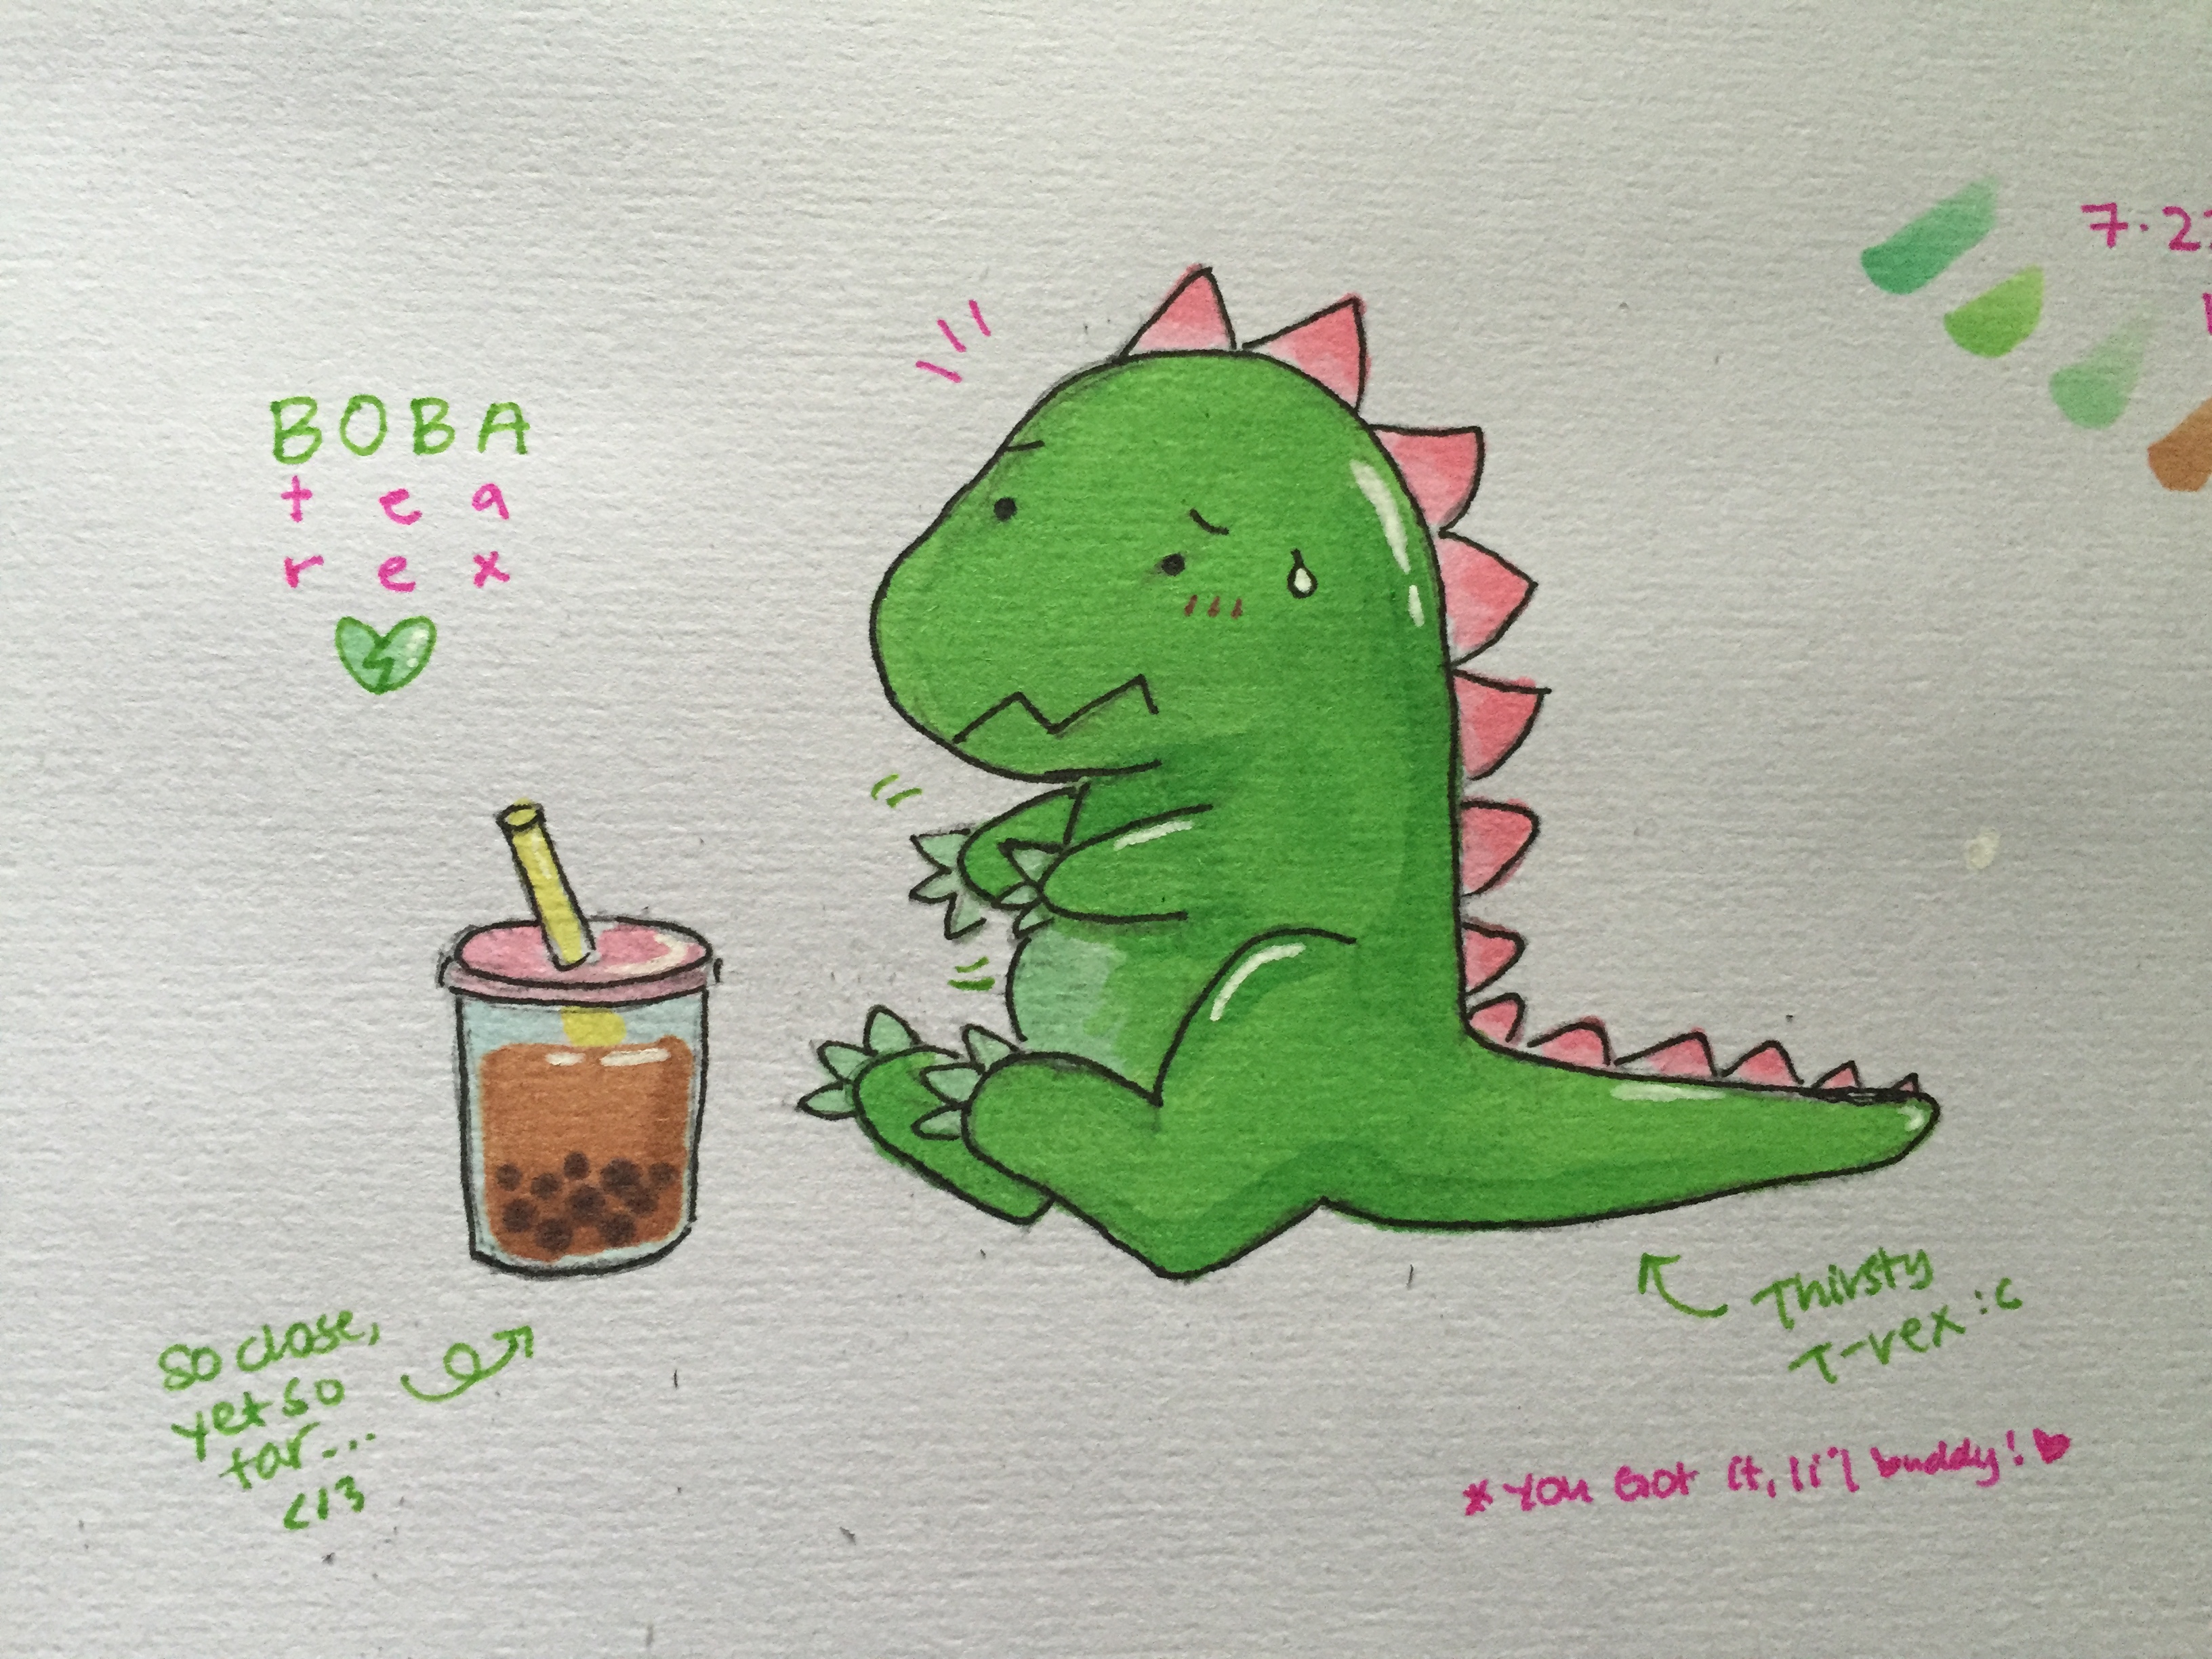 BOBA
tea
rex
so close,
yet so
far...
</3
Thirsty
T-rex :c
*You Got it, li'l buddy! ♥